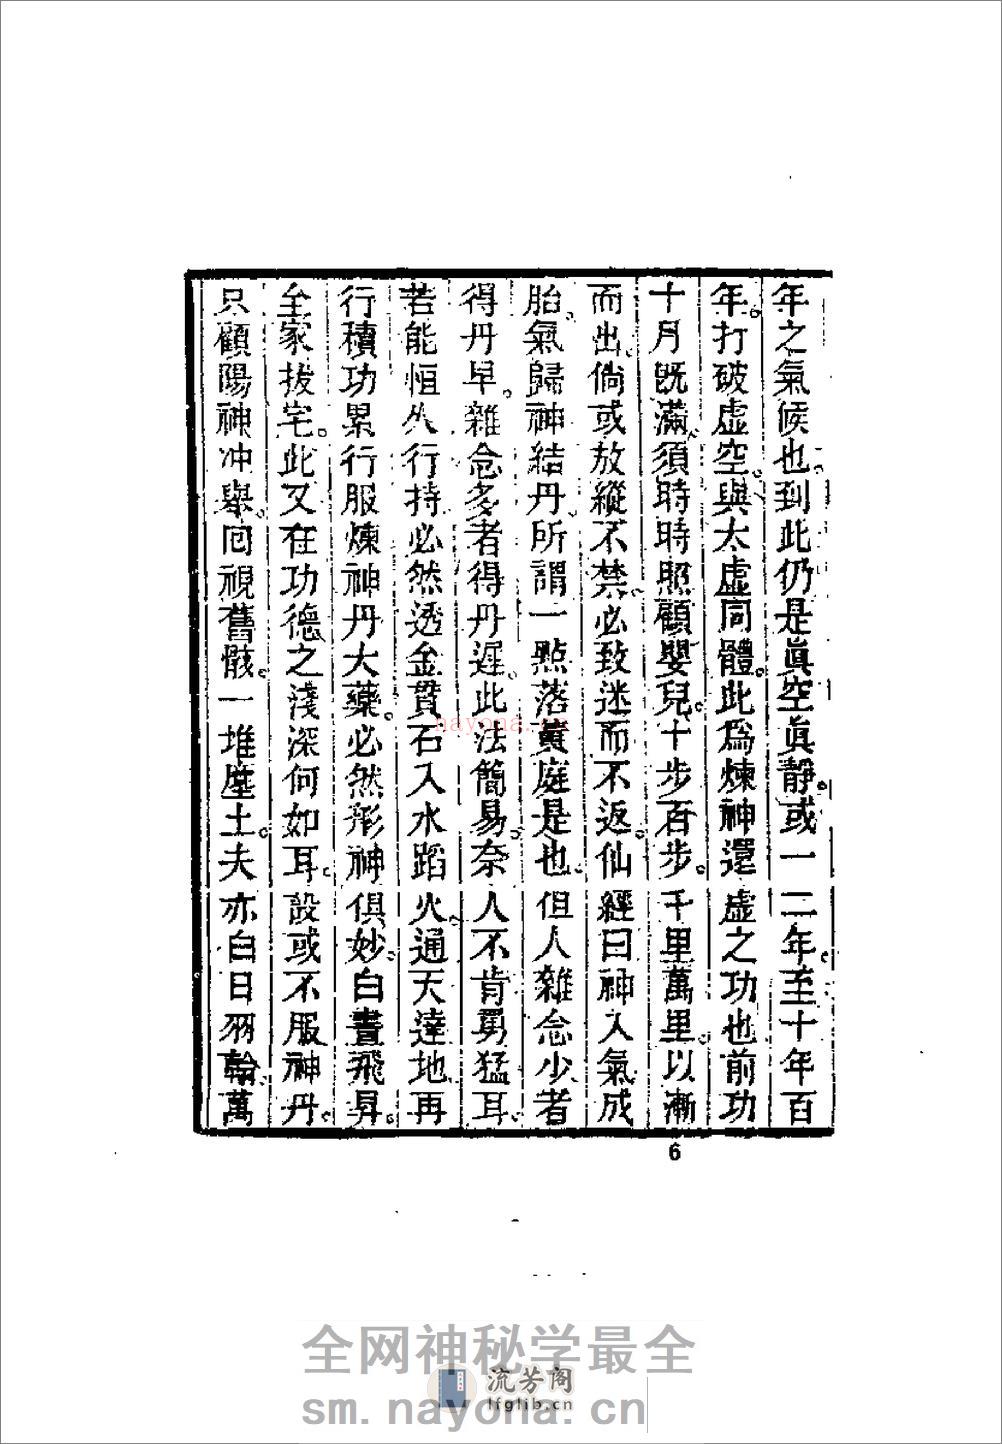 年之氣候也。到此仍是眞空眞靜。或一二年。至十年百
年。打破虛空。與太虛同體。此爲煉神還虛之功也前功
十月旣滿。須時時照顧嬰兒。十步百步。千里萬里。以漸
而出。倘或放縱不禁。必致迷而不返。仙經曰神入氣成
胎。氣歸神結丹。所謂一點落黃庭是也。但人雜念少者
得丹早。雜念多者得丹遲。此法簡易。奈人不肯勇猛耳。
若能恒久行持。必然透金貫石。入水蹈火。通天達地。再
行積功累行。服煉神丹大藥。必然形神俱妙。白晝飛昇。
全家拔宅。此又在功德之淺深何如耳。設或不服神丹。
只顧陽神冲舉。回視舊骸。一堆塵土。夫亦白日羽翰。萬
6
nayona.cn
全网神秘学最全
流芳阁
lfglib.cn
sm.nayona.cn